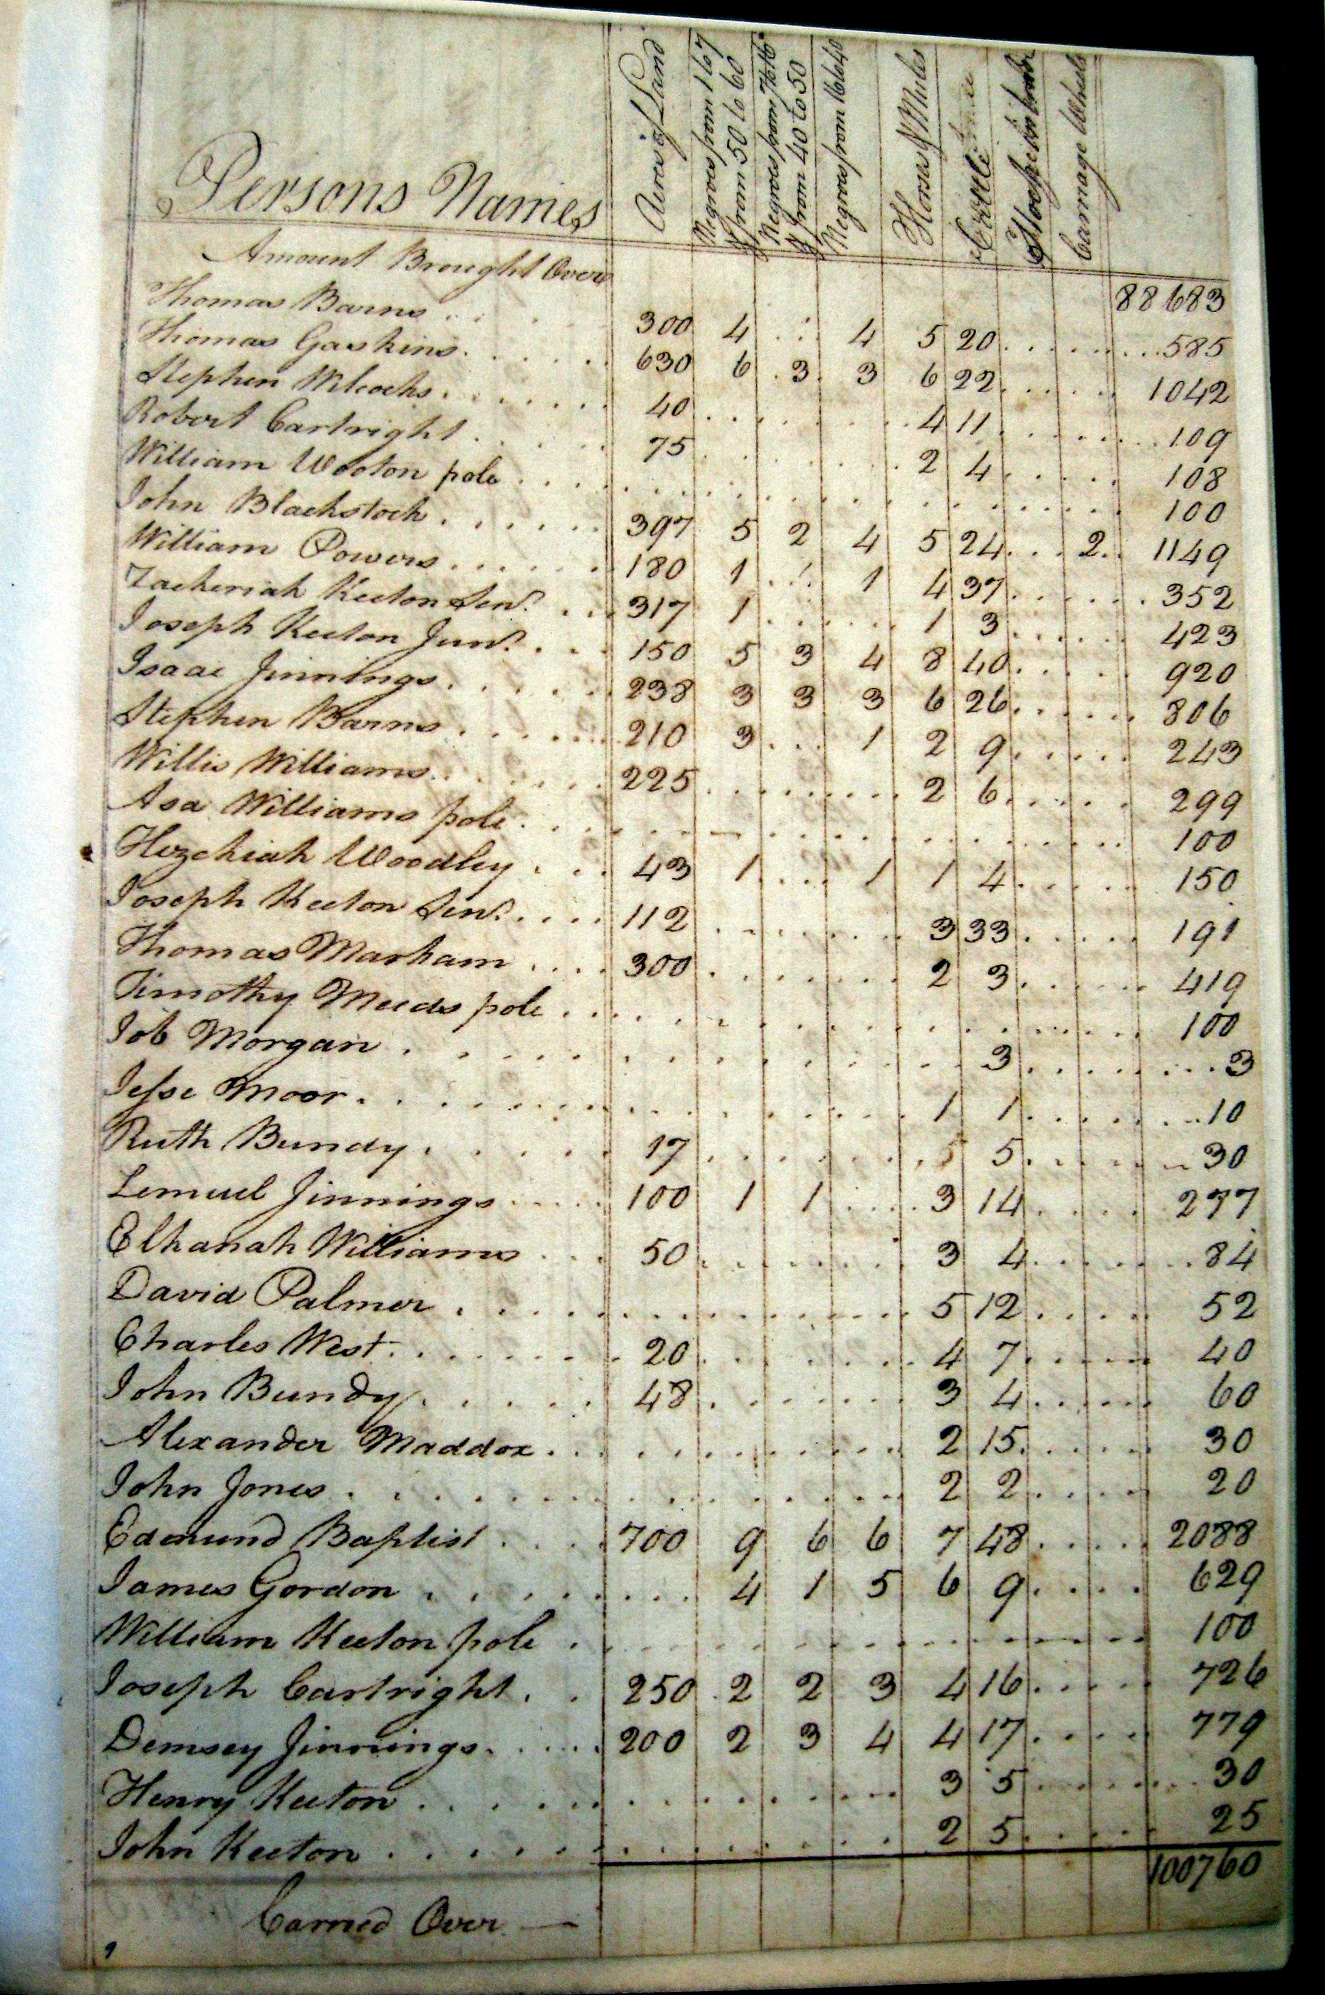 Persons Names Acres of Land Negroes from 1 to 7 & from 50 to 60 Negroes from 7 to 16 & from 40 to 50 Negroes from 16 to 40 Horses & Mules Cattle Carriage Wheels
Amount Brought Over 88683
Thomas Barns 300 4 4 5 20 585
Thomas Gaskins 630 6 3 3 6 22 1042
Stephen Wilcocks 40 4 11 109
Robert Cartright 75 2 4 108
William Wooton pole 100
John Blackstock 397 5 2 4 5 24 2 1149
William Powers 180 1 1 4 37 352
Zacheriah Keeton Senr. 317 1 1 3 423
Joseph Keeton Junr. 150 5 3 4 8 40 920
Isaac Jinnings 238 3 3 3 6 26 806
Stephen Barns 210 3 1 2 9 243
Willis Williams 225 2 6 299
Asa Williams pole 100
Hezekiah Woodley 43 1 1 1 4 150
Joseph Keeton Senr. 112 3 33 191
Thomas Marham 300 2 3 419
Timothy Meeds pole 100
Job Morgan 3 3
Jesse Moor 1 1 10
Ruth Bundy 17 5 5 30
Lemuel Jinnings 100 1 1 3 14 277
Elkanah Williams 50 3 4 84
David Palmer 5 12 52
Charles West 20 4 7 40
John Bundy 48 3 4 60
Alexander Maddox 2 15 30
John Jones 2 2 20
Edmund Baptist 700 9 6 6 7 48 2088
James Gordon 4 1 5 6 9 629
William Keeton pole 100
Joseph Cartright 250 2 2 3 4 16 726
Demsey Jinnings 200 2 3 4 4 17 779
Henry Keeton 3 5 30
John Keeton 2 5 25
100760
Carried Over